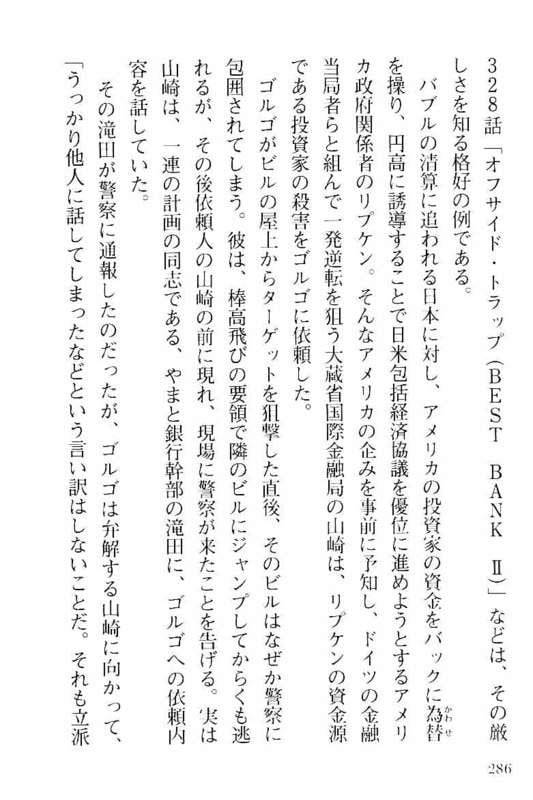 328話「オフサイド・トラップ（BEST BANK Ⅱ）」などは、その厳
しさを知る格好の例である。
バブルの清算に追われる日本に対し、アメリカの投資家の資金をバックに為替
かわせ
を操り、円高に誘導することで日米包括経済協議を優位に進めようとするアメリ
カ政府関係者のリプケン。そんなアメリカの企みを事前に予知し、ドイツの金融
当局者らと組んで一発逆転を狙う大蔵省国際金融局の山崎は、リプケンの資金源
である投資家の殺害をゴルゴに依頼した。
ゴルゴがビルの屋上からターゲットを狙撃した直後、そのビルはなぜか警察に
包囲されてしまう。彼は、棒高飛びの要領で隣のビルにジャンプしてからくも逃
れるが、その後依頼人の山崎の前に現れ、現場に警察が来たことを告げる。実は
山崎は、一連の計画の同志である、やまと銀行幹部の滝田に、ゴルゴへの依頼内
容を話していた。
その滝田が警察に通報したのだったが、ゴルゴは弁解する山崎に向かって、
「うっかり他人に話してしまったなどという言い訳はしないことだ。それも立派
286